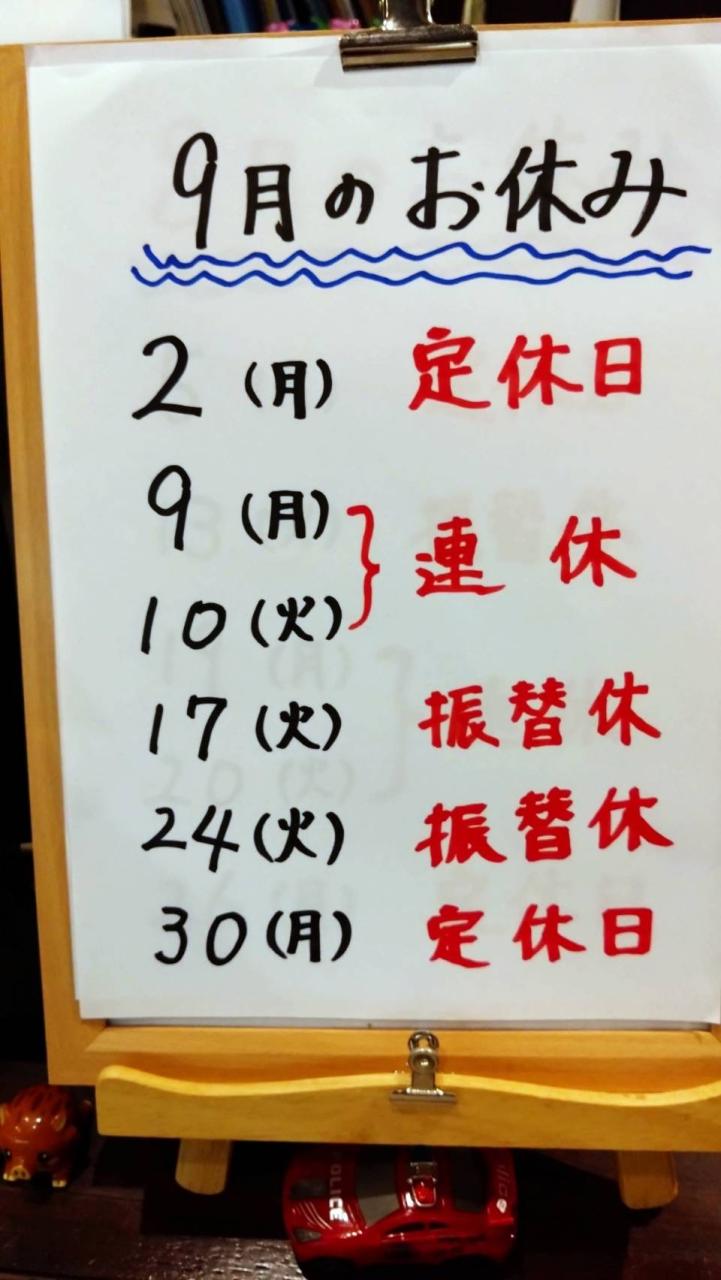 9月のお休み
2(月) 定休日
9(月)
10(火) } 連休
17(火) 振替休
24(火) 振替休
30(月) 定休日
POLICE